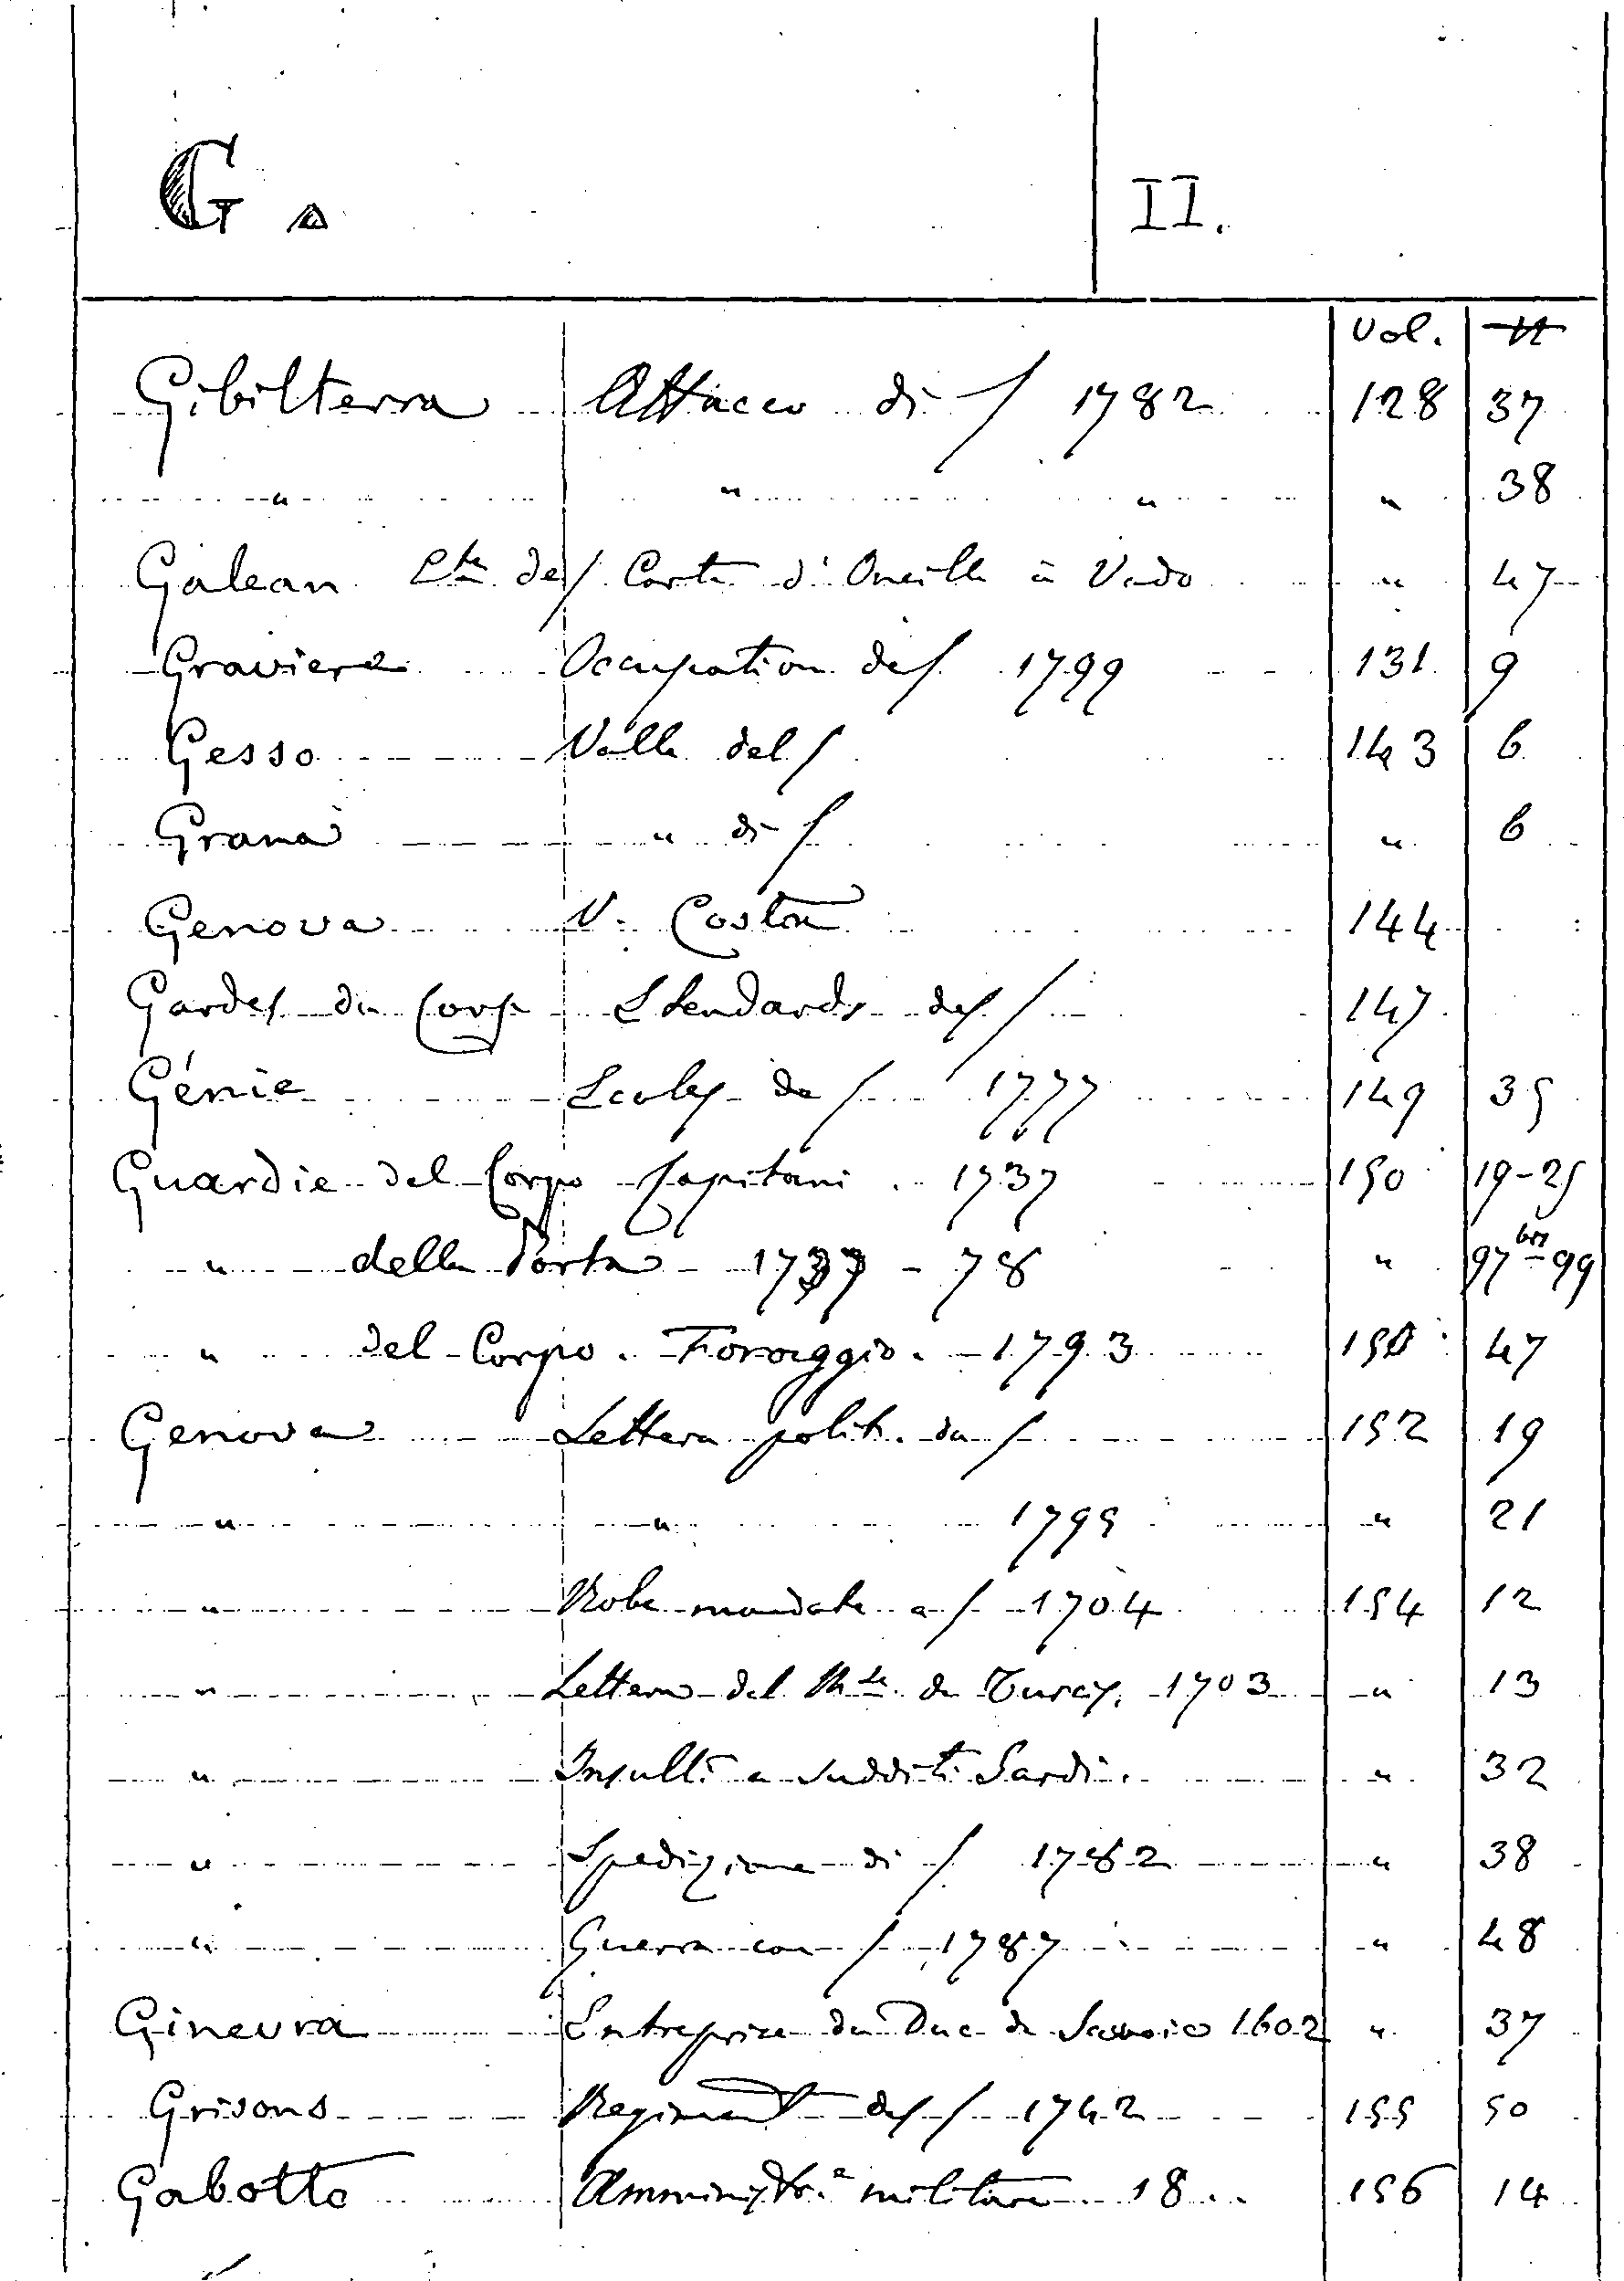 G. II.
Vol. N
Gibilterra Attacco di / 1782 128 37
" " " " 38
Galean Cte de / Carte d'Oneille à Vado " 47
Graviere Occupation des 1799 131 9
Gesso Valle del / 143 6
Grana " di / " 6
Genova V. Coston 144
Gardes du Corps Etendards des / 147
Génie Ecoles de / 1777 149 35
Guardie del Corpo Capitani . 1737 150 19-25
" della Porta 1737 - 78 " 97bis-99
" del Corpo . Foraggio . 1793 150 47
Genova Lettera polit. da / 152 19
" " 1795 " 21
" Robe mandate a / 1704 154 12
" Lettera del Mse de Turcy. 1703 " 13
" Insulti a sudditi Sardi. " 32
" Spedizione di / 1782 " 38
" Guerra con / 1787 " 48
Ginevra Entreprise du Duc de Savoie 1602 " 37
Grisons Regiment des / 1742 155 50
Gabotto Amministr.e militare 18.. 156 14